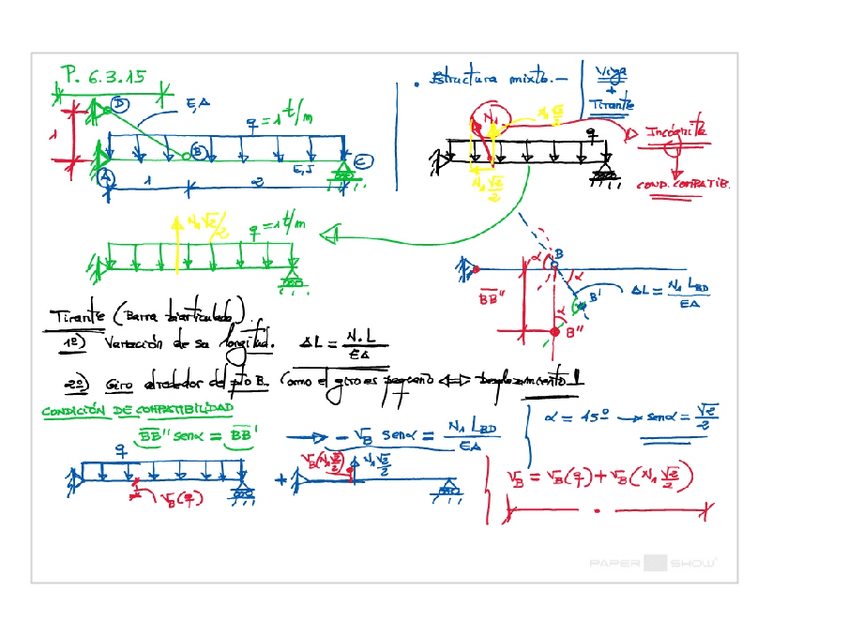 P. 6.3.15
D
E,A
q = 1 t/m
1
B
A
E,I
C
1 2
• Estructura mixta.-
Viga
+
Tirante
N₁
N₁√2/2
q
Incógnita
COND. COMPATIB.
N₁ √2/2
N₁√2/2
q = 1 t/m
B
α
α
BB''
B'
ΔL = N₁ L_BD / EA
α
B''
Tirante (Barra biarticulada).
1º) Variación de su longitud. ΔL = N.L / EA
2º) Giro alrededor del pto B. Como el giro es pequeño <=> Desplazamiento ⊥
CONDICIÓN DE COMPATIBILIDAD
BB'' senα = BB' → - V_B senα = N₁ L_BD / EA
α = 45º → senα = √2/2
q
V_B(q)
+
V_B(N₁√2/2)
N₁√2/2
V_B = V_B(q) + V_B(N₁ √2/2)
PAPER SHOW